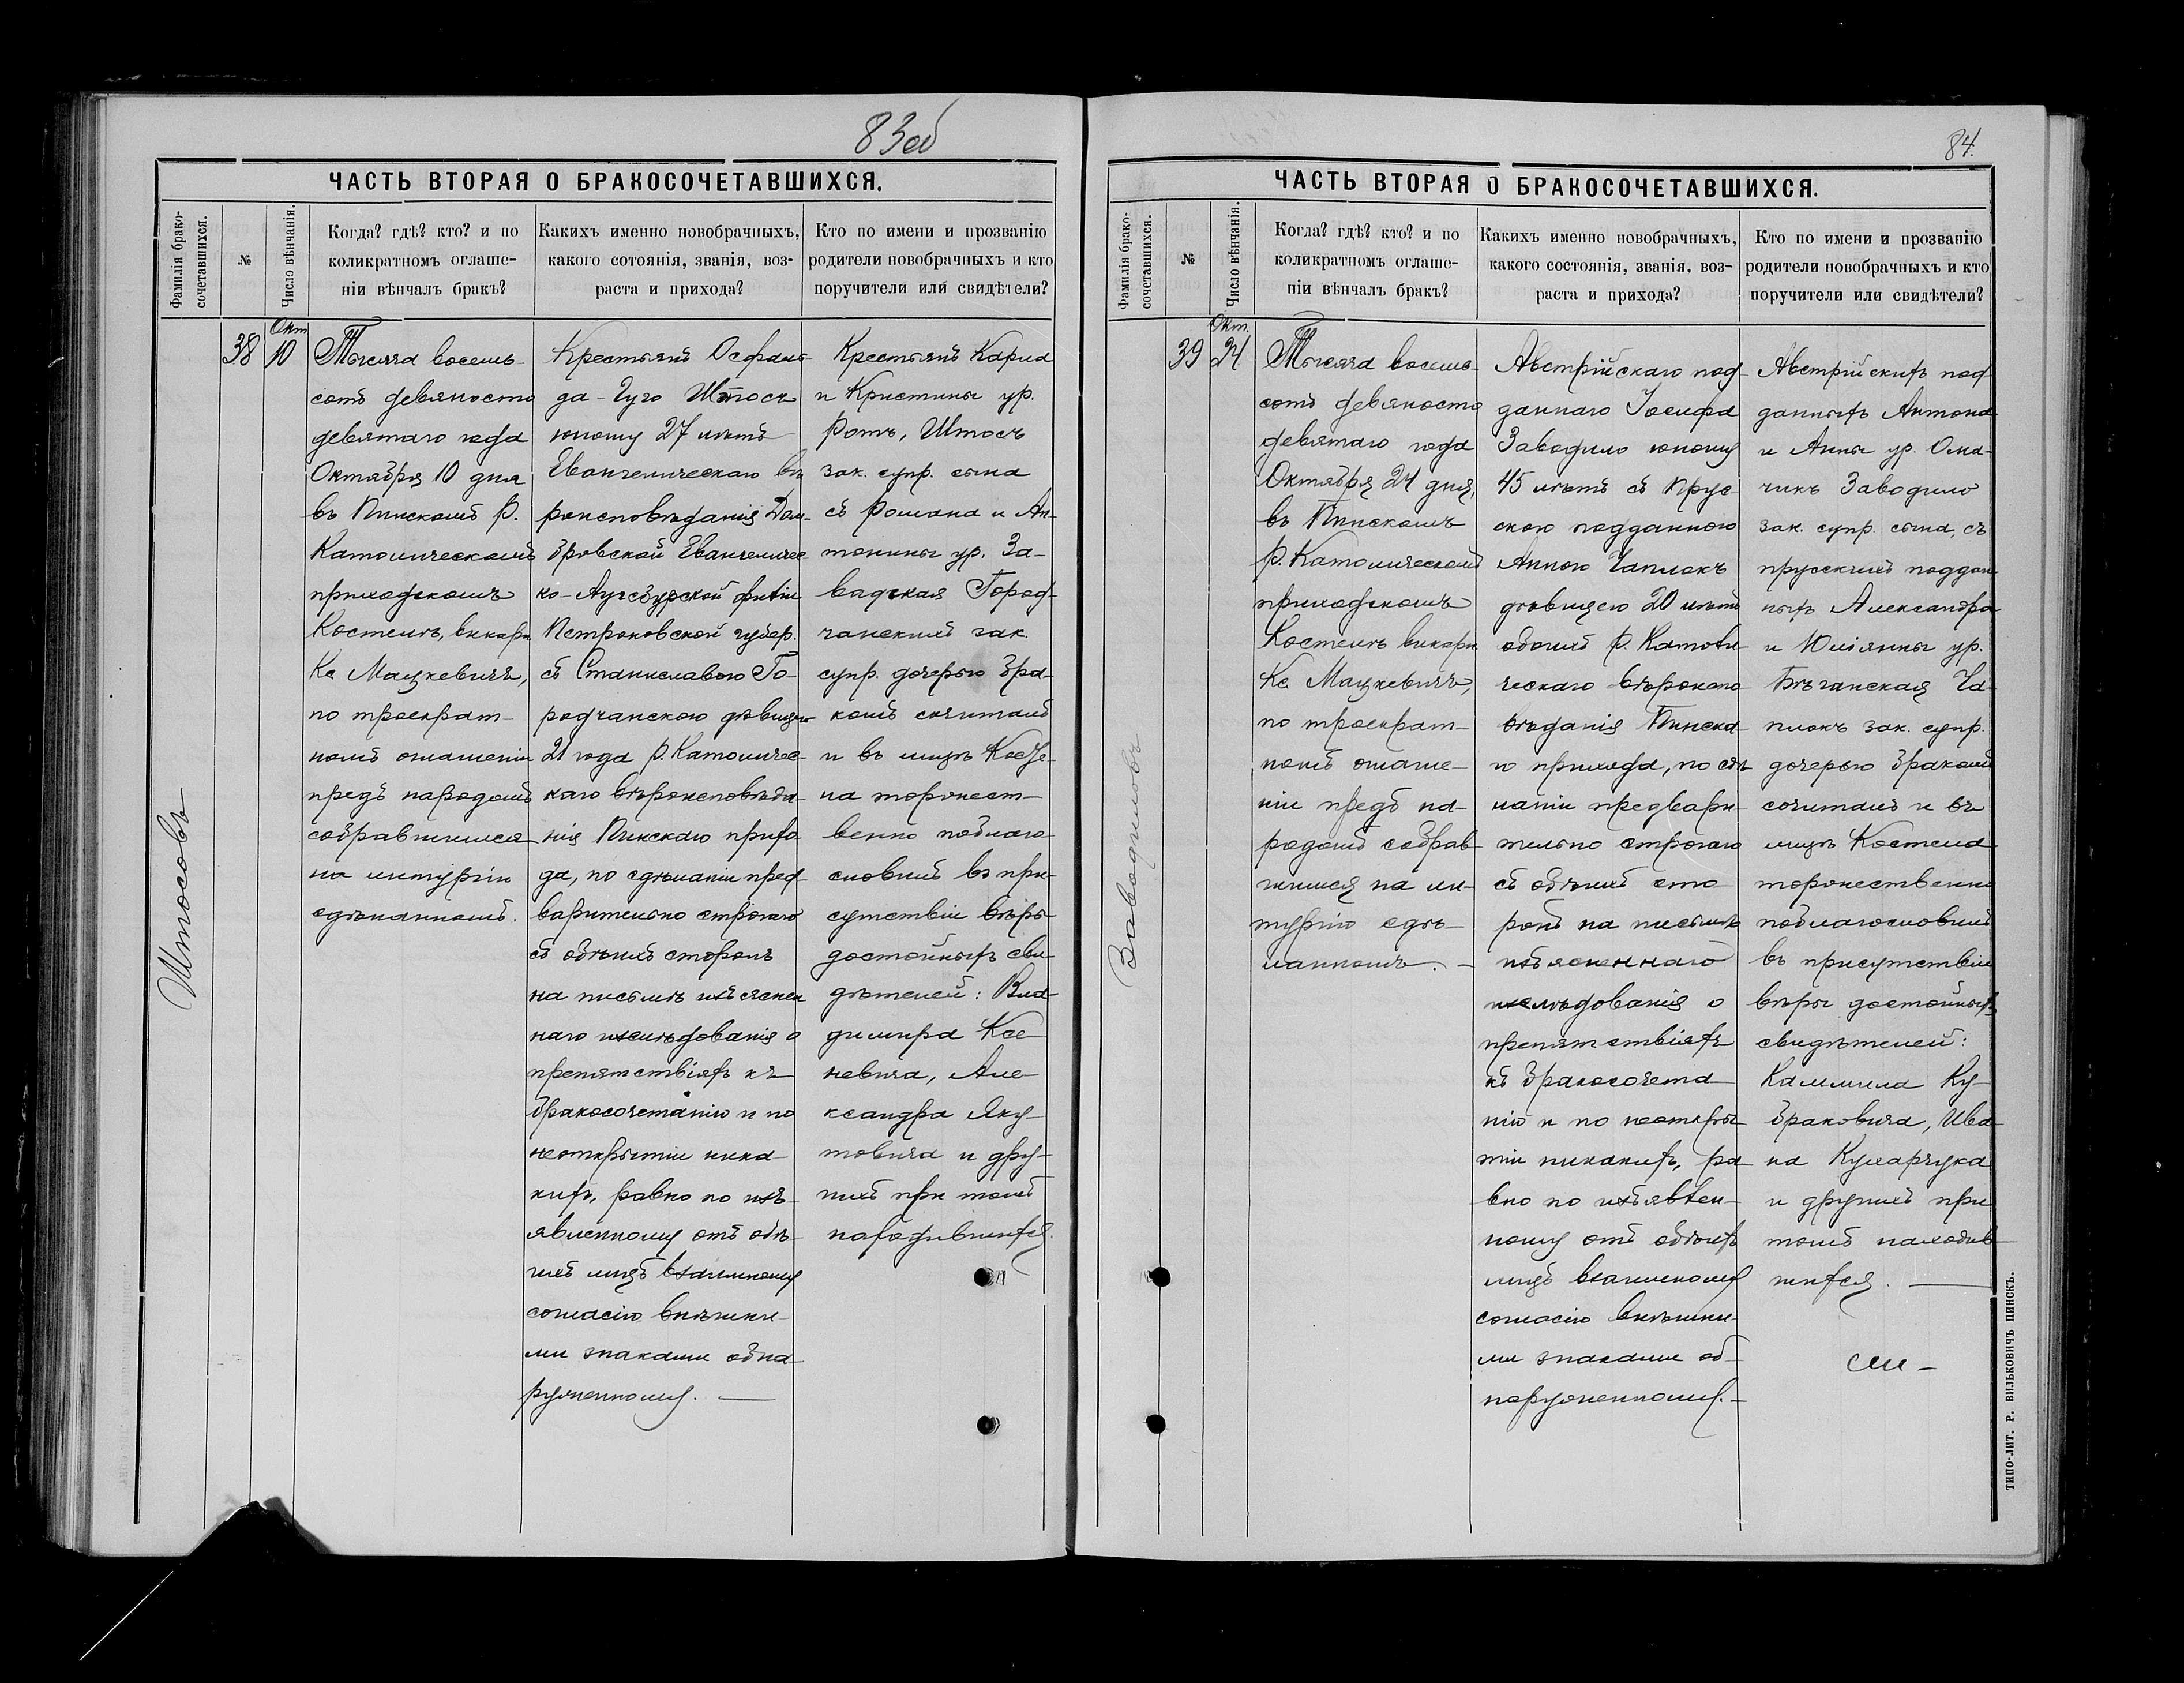 83об
ЧАСТЬ ВТОРАЯ О БРАКОСОЧЕТАВШИХСЯ.
Фамилія брако-
сочетавшихся.
№
Число вѣнчанія.
Когда? гдѣ? кто? и по
коликратномъ оглаше-
ніи вѣнчалъ бракъ?
Какихъ именно новобрачныхъ,
какого сотоянія, званія, воз-
раста и прихода?
Кто по имени и прозванію
родители новобрачныхъ и кто
поручители или свидѣтели?
Штосовъ
38
Окт
10
Тысяча восемь-
сотъ девяносто
девятаго года
Октября 10 дня
въ Пинскомъ Р.
Католическомъ
приходскомъ
Костелѣ, викарн
Кс Мацкевичъ,
по троекрат-
номъ оглашеніи
предъ народомъ
собравшимся
на литургію
сдѣланномъ.
Крестьянъ Осфаль-
да-Гуго Штоса
юношу 27 лѣтъ
Евангелическаго вѣ
роисповѣданія Дом-
бровской Евангеличес
ко-Аугсбурской филіи
Петроковской губер.
съ Станиславою Го-
родчанскою дѣвицею
21 года Р. Католичес-
каго вѣроисповѣда-
нія Пинскаго прихо
да, по сдѣланіи пред-
варительно строгаго
съ обѣихъ сторонъ
на письмѣ изъяснен
наго изслѣдованія о
препятствіяхъ къ
бракосочетанію и по
неоткрытіи ника-
кихъ, равно по изъ-
явленному отъ обѣ-
ихъ лицъ взаимному
согласію внѣшни-
ми знаками обна-
руженному.
Крестьянъ Карла
и Кристины ур.
Ротъ, Штосъ
зак. супр. сына
съ Романа и Ан-
тонины ур. За-
вадская Город-
чанскихъ зак.
супр. дочерью бра-
комъ сочиталъ
и въ лицѣ Косте-
ла торжест-
венно поблаго-
словилъ въ при-
сутствіи вѣры
достойныхъ сви-
дѣтелей: Вла-
димира Кос-
невича, Але-
ксандра Яку-
товича и дру-
гихъ при томъ
находившихся.
84.
ЧАСТЬ ВТОРАЯ О БРАКОСОЧЕТАВШИХСЯ.
Фамилія брако-
сочетавшихся.
№
Число вѣнчанія.
Когда? гдѣ? кто? и по
коликратномъ оглаше-
ніи вѣнчалъ бракъ?
Какихъ именно новобрачныхъ,
какого состоянія, званія, воз-
раста и прихода?
Кто по имени и прозванію
родители новобрачныхъ и кто
поручители или свидѣтели?
Заводиловъ
39
Окт.
24
Тысяча восемь-
сотъ девяносто
девятаго года
Октября 24 дня,
въ Пинскомъ
Р. Католическомъ
приходскомъ
Костелѣ викарн
Кс. Мацкевичъ,
по троекрат-
номъ оглаше-
ніи предъ на-
родомъ собрав-
шимся на ли-
тургію сдѣ-
ланномъ. -
Австрійскаго под-
даннаго Іосифа
Заводило юношу
45 лѣтъ съ прус-
скою подданною
Анною Чаплокъ
дѣвицею 20 лѣтъ
обоихъ Р. Католи-
ческаго вѣроиспо
вѣданія Пинска-
го прихода, по сдѣ
ланіи предвари-
тельно строгаго
съ обѣихъ сто-
ронъ на письмѣ
изъясненнаго
изслѣдованія о
препятствіяхъ
къ бракосочета-
нію и по неоткры-
тіи никакихъ, ра-
вно по изъявлен-
ному отъ обѣихъ
лицъ взаимному
согласію внѣшни-
ми знаками об-
наруженному. -
Австрійскихъ под-
данныхъ Антона
и Анны ур. Ома-
чикъ Заводило
зак. супр. сына, съ
прусскихъ поддан
ныхъ Александра
и Юліянны ур.
Бѣганская Ча-
плокъ зак. супр.
дочерью бракомъ
сочиталъ и въ
лицѣ Костела
торжественно
поблагословилъ
въ присутствіи
вѣры достойныхъ
свидѣтелей:
Камилла Ку-
браковича, Ива-
на Кухарчука
и другихъ при
томъ находив-
шихся.
ТИПО-ЛИТ. Р. ВИЛЬКОВИЧЪ ПИНСКЪ.